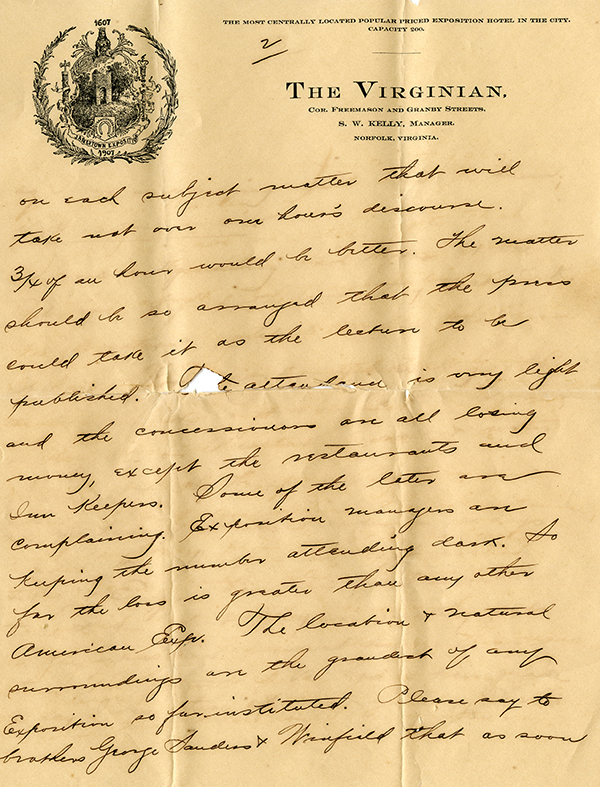 THE MOST CENTRALLY LOCATED POPULAR PRICED EXPOSITION HOTEL IN THE CITY.
CAPACITY 200.
2
1607
JAMESTOWN EXPOSITION
1907
THE VIRGINIAN,
COR. FREEMASON AND GRANBY STREETS.
S. W. KELLY, MANAGER.
NORFOLK, VIRGINIA.
on each subject matter that will
take not over one hour's discourse.
3/4 of an hour would be better. The matter
should be so arranged that the press
could take it as the lecture to be
published. The attendance is very light
and the concessioners are all losing
money, except the restaurants and
Inn Keepers. Some of the later are
complaining. Exposition managers are
keeping the number attending dark. So
far the loss is greater than any other
American Expo. The location & natural
surroundings are the grandest of any
Exposition so far instituted. Please say to
brothers George Sanders & Winfield that as soon